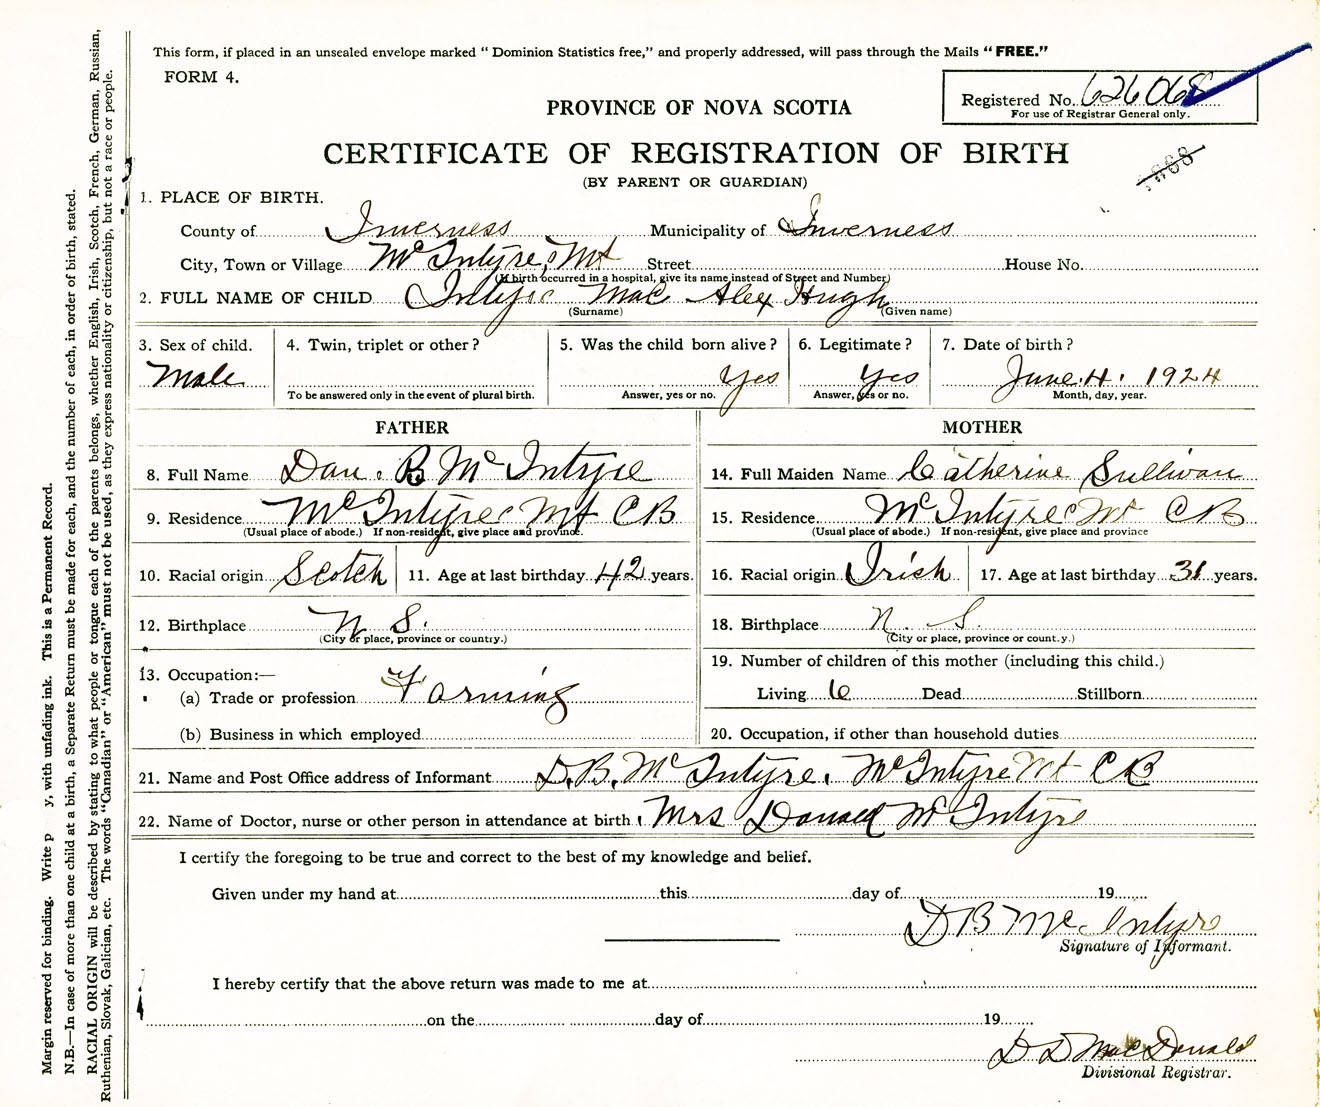 This form, if placed in an unsealed envelope marked " Dominion Statistics free," and properly addressed, will pass through the Mails " FREE."
FORM 4.
Registered No. 626068
For use of Registrar General only.
PROVINCE OF NOVA SCOTIA
CERTIFICATE OF REGISTRATION OF BIRTH
(BY PARENT OR GUARDIAN)
1. PLACE OF BIRTH.
County of Inverness Municipality of Inverness
City, Town or Village McIntyre, Mt Street House No.
(If birth occurred in a hospital, give its name instead of Street and Number)
2. FULL NAME OF CHILD Intyre Mac Alex Hugh
(Surname) (Given name)
3. Sex of child. 4. Twin, triplet or other ? 5. Was the child born alive ? 6. Legitimate ? 7. Date of birth ?
Male yes yes June 4. 1924
To be answered only in the event of plural birth. Answer, yes or no. Answer, yes or no. Month, day, year.
FATHER MOTHER
8. Full Name Dan. B McIntyre 14. Full Maiden Name Catherine Sullivan
9. Residence McIntyre Mt CB 15. Residence McIntyre Mt CB
(Usual place of abode.) If non-resident, give place and province. (Usual place of abode.) If non-resident, give place and province
10. Racial origin Scotch 11. Age at last birthday 42 years. 16. Racial origin Irish 17. Age at last birthday 31 years.
12. Birthplace N S. 18. Birthplace N. S.
(City or place, province or country.) (City or place, province or count.y.)
13. Occupation:— 19. Number of children of this mother (including this child.)
(a) Trade or profession Farming Living 6 Dead Stillborn
(b) Business in which employed 20. Occupation, if other than household duties
21. Name and Post Office address of Informant D.B. McIntyre. McIntyre Mt CB
22. Name of Doctor, nurse or other person in attendance at birth Mrs Donald McIntyre
I certify the foregoing to be true and correct to the best of my knowledge and belief.
Given under my hand at this day of 19
D B McIntyre
Signature of Informant.
I hereby certify that the above return was made to me at
on the day of 19
D D MacDonald
Divisional Registrar.
Margin reserved for binding. Write p y, with unfading ink. This is a Permanent Record.
N.B.—In case of more than one child at a birth, a Separate Return must be made for each, and the number of each, in order of birth, stated.
RACIAL ORIGIN will be described by stating to what people or tongue each of the parents belongs, whether English, Irish, Scotch, French, German, Russian,
Ruthenian, Slovak, Galician, etc. The words "Canadian" or "American" must not be used, as they express nationality or citizenship, but not a race or people.